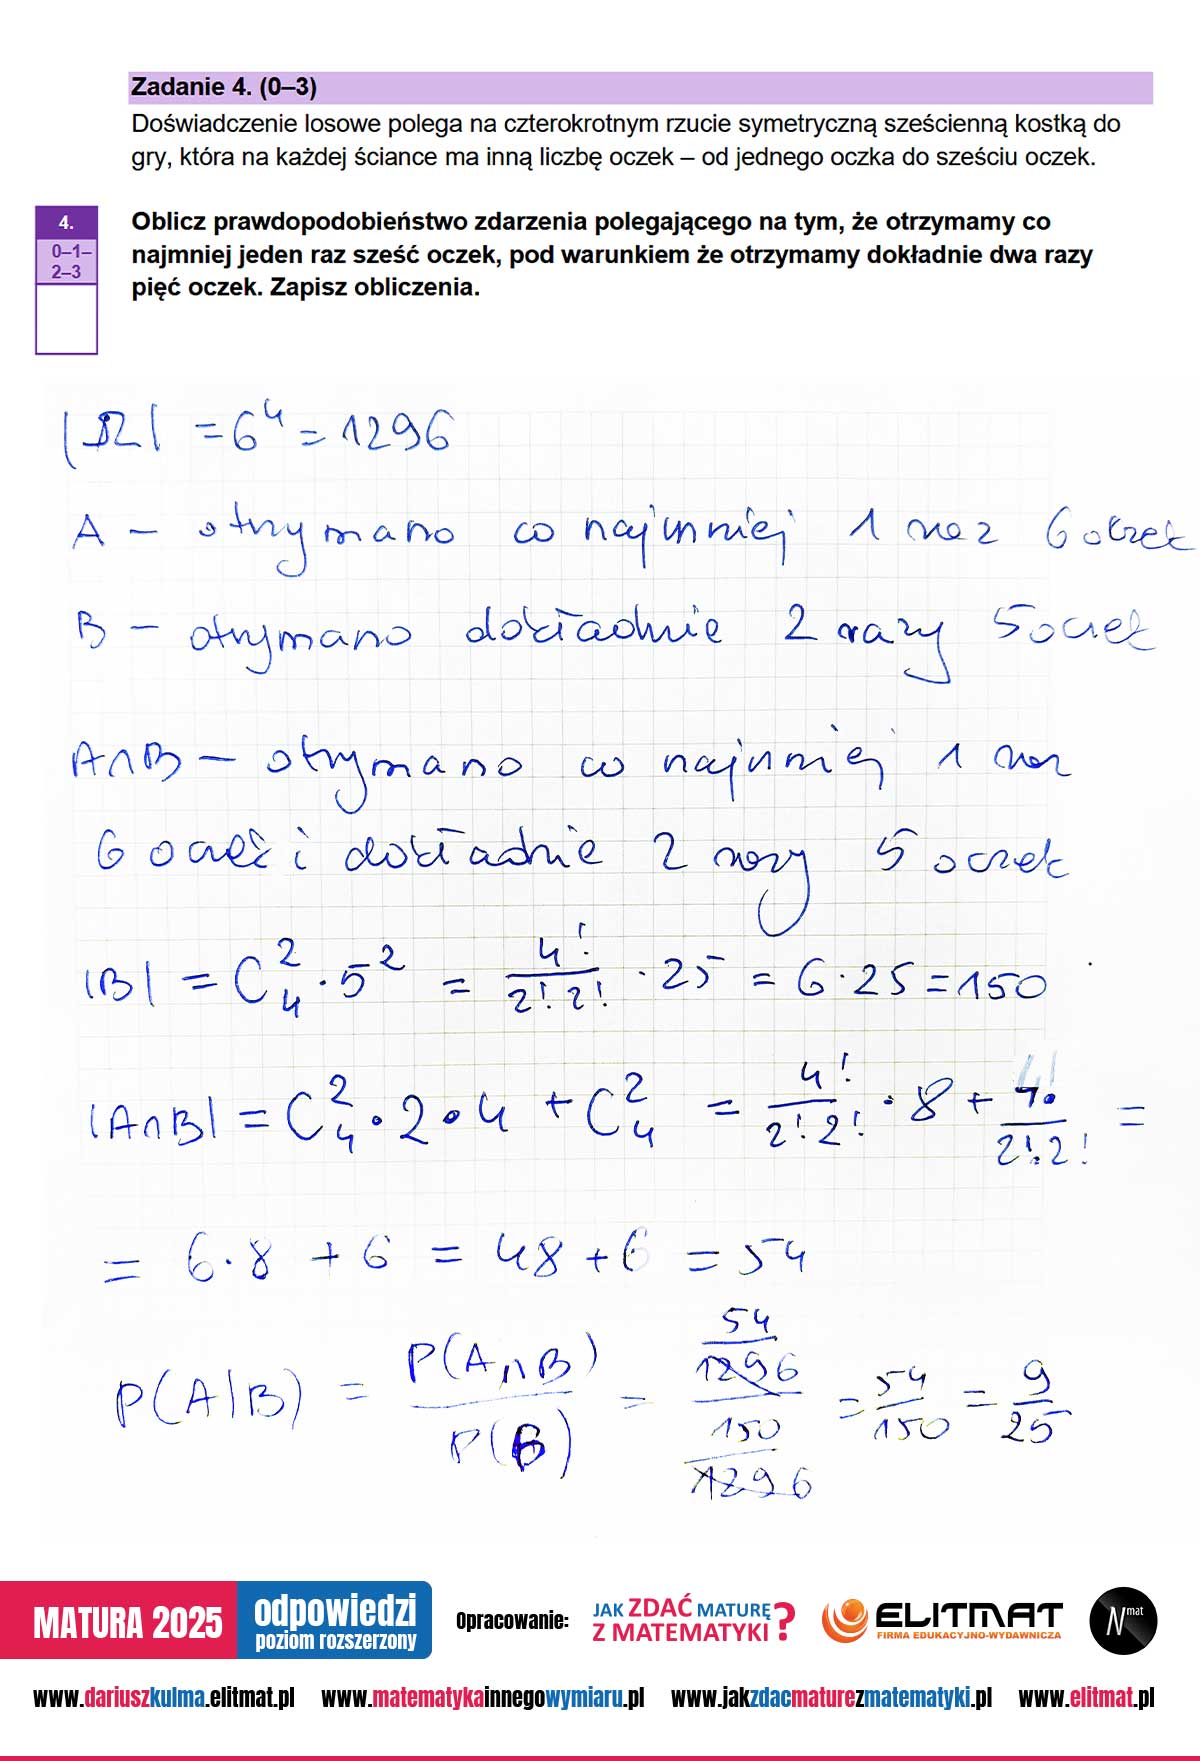 Zadanie 4. (0–3)
Doświadczenie losowe polega na czterokrotnym rzucie symetryczną sześcienną kostką do
gry, która na każdej ściance ma inną liczbę oczek – od jednego oczka do sześciu oczek.
4.
0–1–
2–3
Oblicz prawdopodobieństwo zdarzenia polegającego na tym, że otrzymamy co
najmniej jeden raz sześć oczek, pod warunkiem że otrzymamy dokładnie dwa razy
pięć oczek. Zapisz obliczenia.
|Ω| = 6^4 = 1296
A – otrzymano co najmniej 1 raz 6 oczek
B – otrzymano dokładnie 2 razy 5 oczek
A∩B – otrzymano co najmniej 1 raz
6 oczek i dokładnie 2 razy 5 oczek
|B| = C_4^2 · 5^2 = 4!/(2!2!) · 25 = 6·25 = 150
|A∩B| = C_4^2 · 2 · 4 + C_4^2 = 4!/(2!2!) · 8 + 4!/(2!2!) =
= 6·8 + 6 = 48 + 6 = 54
P(A|B) = P(A∩B)/P(B) = (54/1296)/(150/1296) = 54/150 = 9/25
MATURA 2025
odpowiedzi
poziom rozszerzony
Opracowanie:
JAK ZDAĆ MATURĘ
Z MATEMATYKI ?
ELITMAT
FIRMA EDUKACYJNO-WYDAWNICZA
Nmat
www.dariuszkulma.elitmat.pl www.matematykainnegowymiaru.pl www.jakzdacmaturezmatematyki.pl www.elitmat.pl